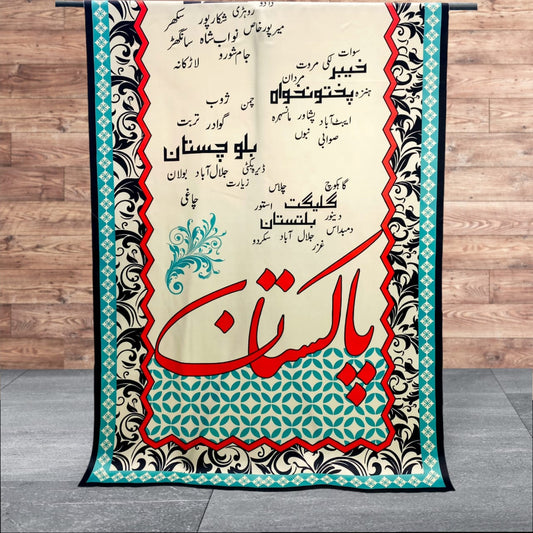 دادو
روہڑی شکارپور سکھر
میرپورخاص نواب شاہ سانگھڑ
جام شورو لاڑکانہ
سوات
لکی مروت
مردان
خیبر
پختونخواہ
ہنزہ
ایبٹ آباد پشاور مانسہرہ
صوابی بنوں
چمن ژوب
گوادر تربت
بلوچستان
ڈیرہ بگٹی جلال آباد بولان
زیارت
چاغی
گاہکوچ چلاس
گلیگت
استور
دینور بلتستان
دمبداس جلال آباد سکردو
غزر
پاکستان